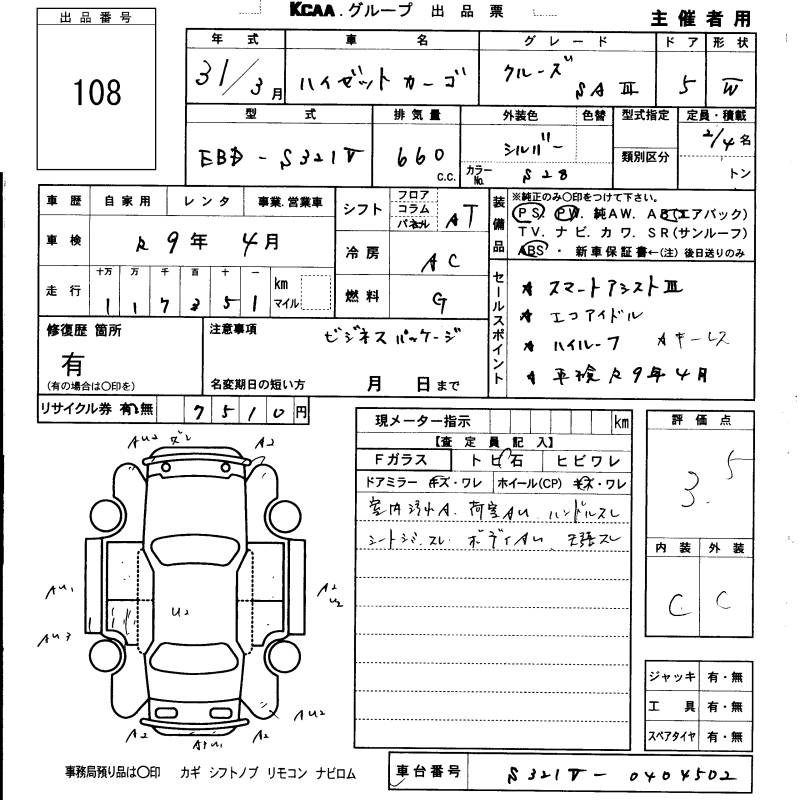 KCAA.グループ 出品票
主催者用
出品番号
108
年式 車名 グレード ドア 形状
31/3月 ハイゼット カーゴ クルーズ SAⅢ 5 W
型式 排気量 外装色 色替 型式指定 定員・積載
EBD-S321V 660 C.C. シルバー 2/4名
カラーNo. S28 類別区分 トン
車歴 自家用 レンタ 事業.営業車
車検 R9年 4月
走行 十万 万 千 百 十 一
117351 km マイル
シフト フロア コラム パネル AT
冷房 AC
燃料 G
装備品 ※純正のみ○印をつけて下さい。
PS PW. 純AW. AB(エアバック)
TV. ナビ. カワ. SR(サンルーフ)
ABS・ 新車保証書←(注) 後日送りのみ
セールスポイント
★ スマートアシストⅢ
★ エコアイドル
★ ハイルーフ ★キーレス
★ 車検R9年4月
修復歴 箇所
有
(有の場合は○印を)
注意事項 ビジネスパッケージ
名変期日の短い方 月 日まで
リサイクル券 有.無 7510円
現メーター指示 km
【査定員記入】
Fガラス トビ石 ヒビワレ
ドアミラー キズ・ワレ ホイール(CP) キズ・ワレ
室内汚れA. 荷室AU. ハンドルスレ
シートシミ.スレ ボディAU. 天張スレ
評価点
3.5
内装 外装
C C
ジャッキ 有・無
工具 有・無
スペアタイヤ 有・無
AU2 A2
AU1 U2 A2 U2
AU3
AU2
A2 A2
事務局預り品は○印 カギ シフトノブ リモコン ナビロム
車台番号 S321V-0404502